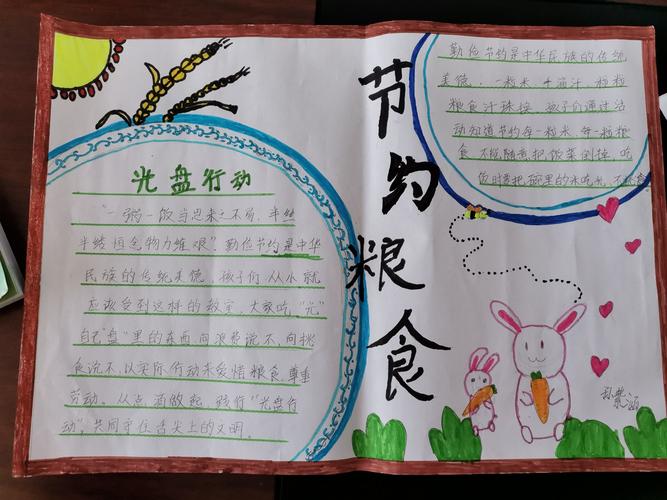 光盘行动
"一粥一饭当思来之不易，半丝
半缕恒念物力维艰"勤俭节约是中华
民族的传统美德，孩子们从小就
应该受到这样的教育，大家吃"光"
自己"盘"里的东西，向浪费说不，向挑
食说不，以实际行动来爱惜粮食，尊重
劳动。从点滴做起，践行"光盘行
动"，共同守住舌尖上的文明。
节约粮食
勤俭节约是中华民族的传统
美德，一粒米 千滴汗，粒粒
粮食汗珠换，孩子们通过活
动知道节约每一粒米，每一粒粮
食 不能随意把饭菜倒掉，吃
饭时要把碗里的米吃光，不